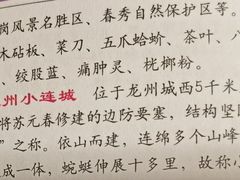 岗风景名胜区、春秀自然保护区等。
木砧板、菜刀、五爪蛤蚧、茶叶、八
、绞股蓝、痛肿灵、桄榔粉。
州小连城 位于龙州城西5千米
将苏元春修建的边防要塞，结构坚固
”之称。依山而建，连绵多个山峰
成一体，蜿蜒伸展十多里，故称小